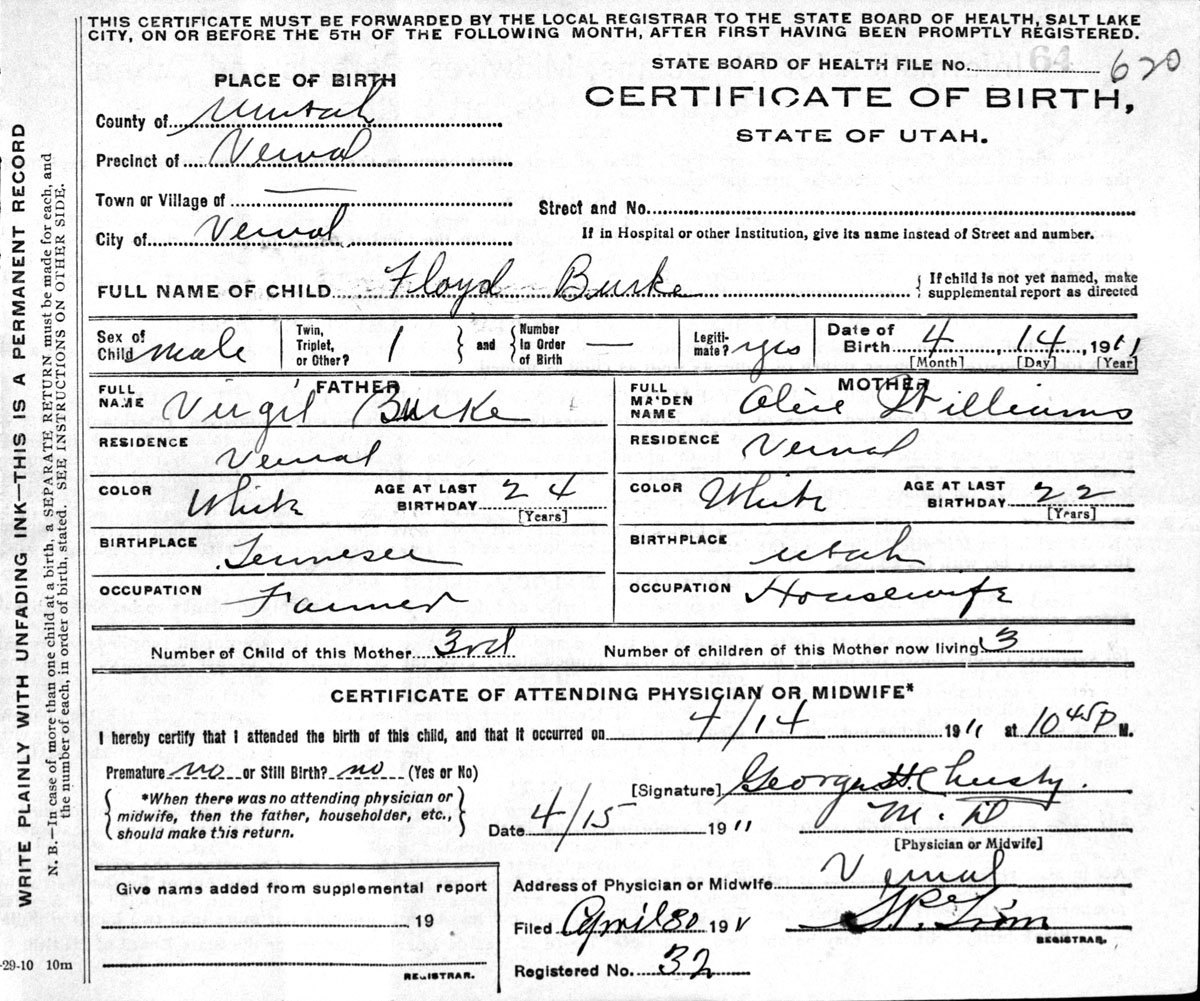 THIS CERTIFICATE MUST BE FORWARDED BY THE LOCAL REGISTRAR TO THE STATE BOARD OF HEALTH, SALT LAKE
CITY, ON OR BEFORE THE 5TH OF THE FOLLOWING MONTH, AFTER FIRST HAVING BEEN PROMPTLY REGISTERED.
STATE BOARD OF HEALTH FILE No. 620
PLACE OF BIRTH
CERTIFICATE OF BIRTH,
STATE OF UTAH.
County of Uintah
Precinct of Vernal
Town or Village of —
Street and No.
City of Vernal
If in Hospital or other Institution, give its name instead of Street and number.
FULL NAME OF CHILD Floyd Burke { If child is not yet named, make
supplemental report as directed
Sex of Child male Twin, Triplet, or Other? 1 } and { Number in Order of Birth — Legiti-mate? yes Date of Birth 4, 14, 1911
[Month] [Day] [Year]
FATHER MOTHER
FULL NAME Virgil Burke FULL MAIDEN NAME Olive Williams
RESIDENCE Vernal RESIDENCE Vernal
COLOR White AGE AT LAST BIRTHDAY 24 [Years] COLOR White AGE AT LAST BIRTHDAY 22 [Years]
BIRTHPLACE Tennesee BIRTHPLACE Utah
OCCUPATION Farmer OCCUPATION Housewife
Number of Child of this Mother 3rd Number of children of this Mother now living 3
CERTIFICATE OF ATTENDING PHYSICIAN OR MIDWIFE*
I hereby certify that I attended the birth of this child, and that it occurred on 4/14 1911 at 10 45 P M.
Premature no or Still Birth? no (Yes or No)
[Signature] George H. Christy.
{ *When there was no attending physician or
midwife, then the father, householder, etc.,
should make this return. }
Date 4/15 1911 M.D
[Physician or Midwife]
Give name added from supplemental report
19
REGISTRAR.
Address of Physician or Midwife Vernal
Filed April 30 1911
REGISTRAR.
Registered No. 32
WRITE PLAINLY WITH UNFADING INK—THIS IS A PERMANENT RECORD
N. B.—In case of more than one child at a birth, a SEPARATE RETURN must be made for each, and
the number of each, in order of birth, stated. SEE INSTRUCTIONS ON OTHER SIDE.
-29-10 10m